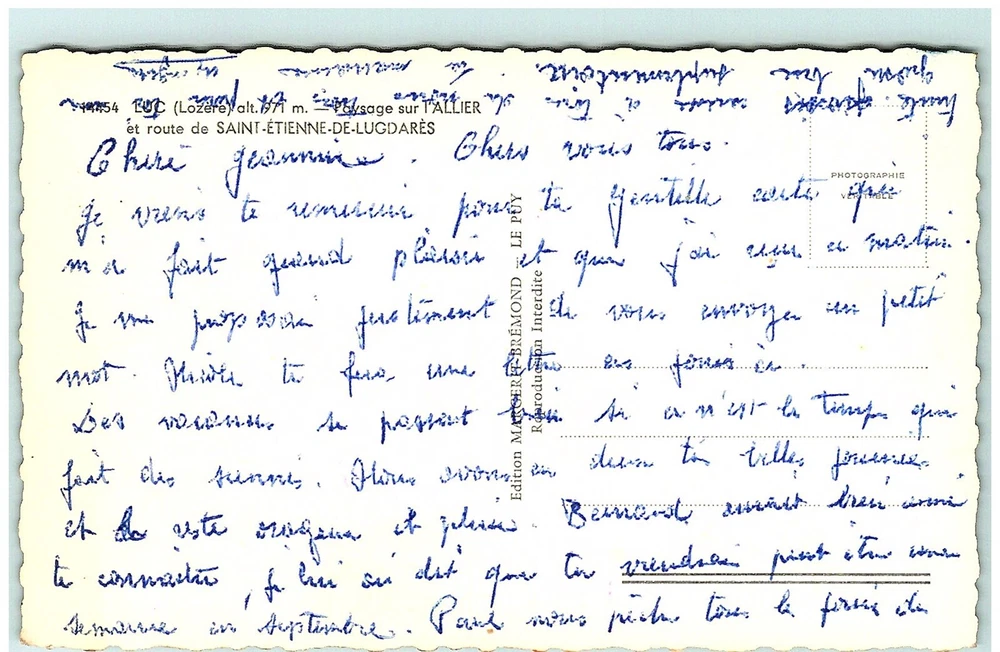 14454 LUC (Lozère) alt. 971 m. — Paysage sur l'ALLIER
et route de SAINT-ÉTIENNE-DE-LUGDARÈS
PHOTOGRAPHIE
VÉRITABLE
Edition MARGERIT-BRÉMOND — LE PUY
Reproduction Interdite
Chère Jeannine. Chers vous tous.
Je viens te remercier pour ta gentille carte qui
m'a fait grand plaisir et que j'ai reçu ce matin.
Je me proposai justement de vous envoyer un petit
mot. te fera une lettre ces jours ci.
Les vacances se passent bien si ce n'est le temps qui
fait des siennes. Nous avons eu deux très belles journées
et le reste orageux et pluie. Bernard aurait bien aimé
te connaître, je lui ai dit que tu viendrai peut être une
semaine en septembre. Paul nous pêche tous les jours des
truites à la
supplémentaire.